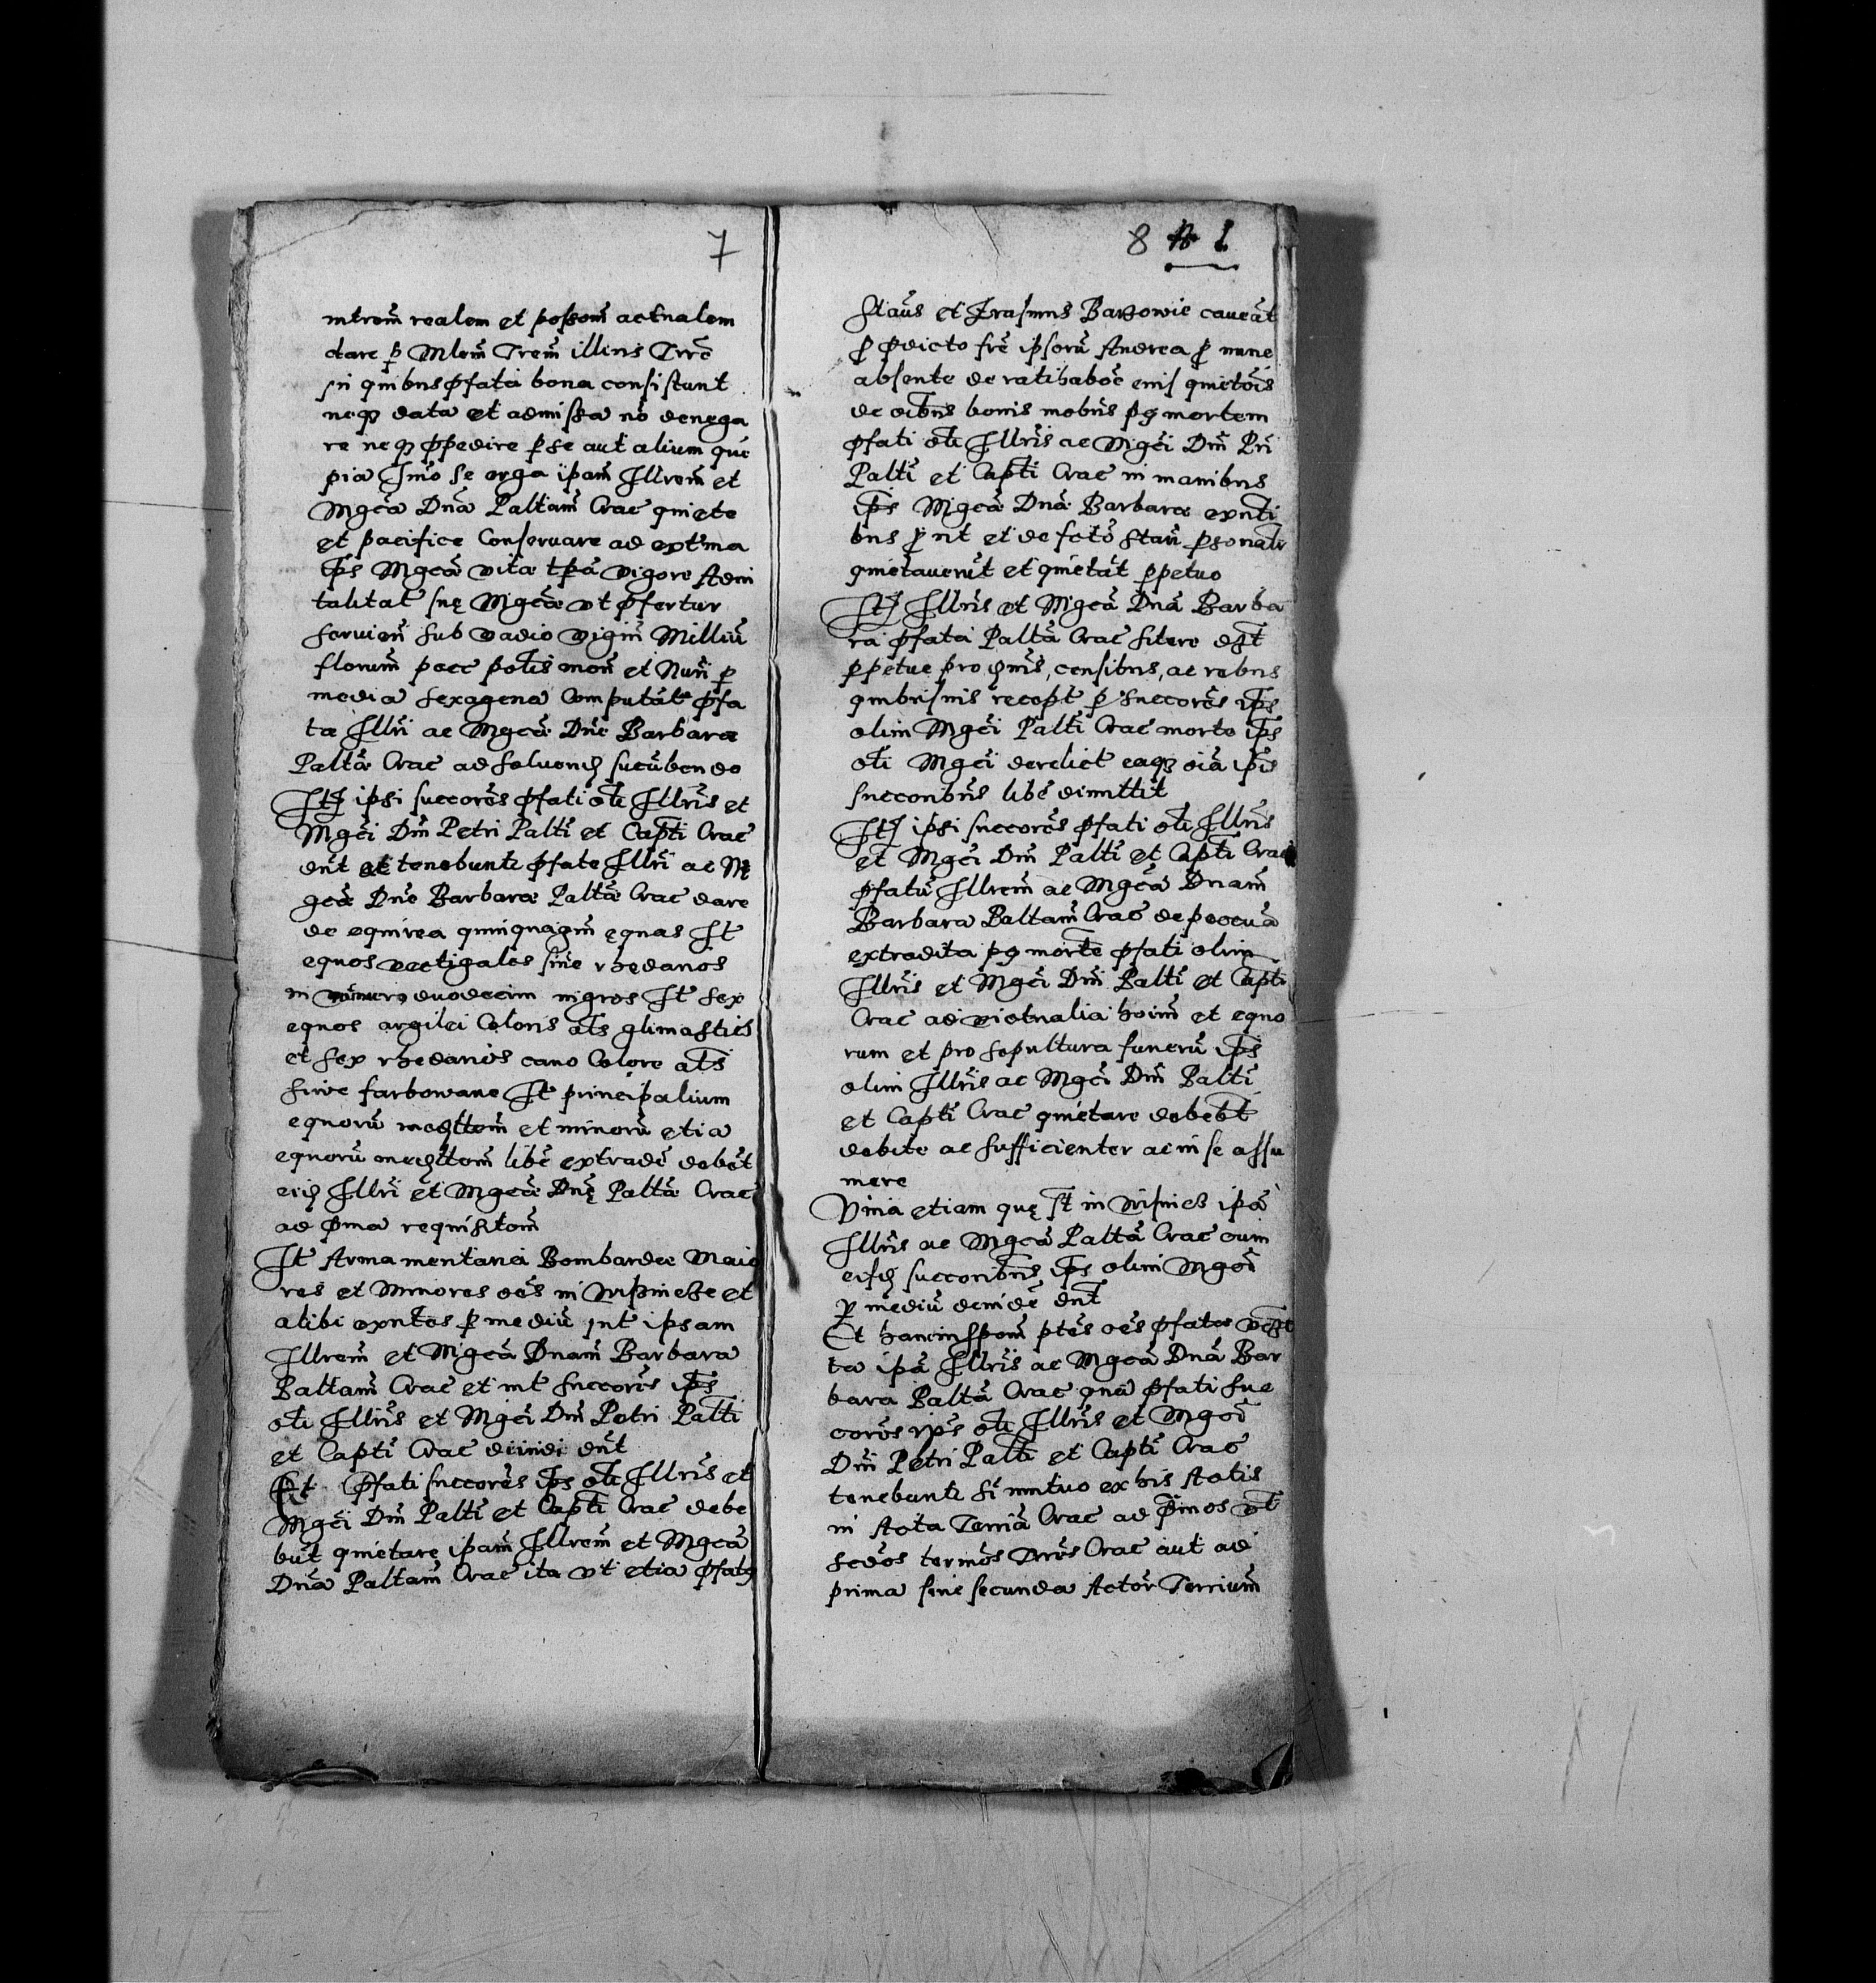 7
introm̄ realem et possom̄ actualem
dare p Mlem̄ Trem̄ illius Trrē
in quibus pfata bona consistunt
neqȝ data et admissa nō denega
re neqȝ ppedire p se aut alium quē
pia Imo se erga ipam̄ Illrem̄ et
Mgcā Dnā Paltam̄ Crac̄ quiete
et pacifice conservare ad extma
ips Mgcā vita tpā vigore Advi
talitat suę Mgcā ut pfertur
servien̄ sub vadio vigin̄ Milliū
florum̄ pecc potis mon̄ et Nuri p
media sexagena computāt pfa
tæ Illri ac Mgcā Dnē Barbaræ
Paltā Crac̄ ad solvend succūbendo
Itȝ ipsi succorēs pfati oti Illris et
Mgci Dni Petri Palti et Capti Crac̄
dnt et tenebunt pfate Illri ac M
gcæ Dnē Barbaræ Paltæ Crac̄ dare
de equirea quinquagin̄ ęquas It
equos vectigales sive rhedanos
in numero duodecim nigros It sex
equos argilei coloris als glimasticz
et sex rhedarios cano colore als
sive farbowane It principalium
equorū et minorū etia
equorū libē extradē debēt
eid Illri et Mgcā Dnę Paltā Crac̄
ad pma requisitom̄
It Armamentaria Bombardæ Maio
res et Minores oēs in Wisnicze et
alibi exntes p mediū int ipsam
Illrem̄ et Mgcā Dnam̄ Barbara
Paltam̄ Crac̄ et int succorēs ips
oti Illris et Mgci Dni Petri Palti
et Capti Crac̄ dividi dnt
Et Pfati succorēs Ips oti Illris et
Mgci Dni Palti et Capti Crac̄ debe
būt quietare ipam̄ Illrem̄ et Mgcā
Dnā Paltam̄ Crac̄ ita ut etia pfatȝ
8
Staūs et Erasmus Barzowie caveāt
p pdicto frē ipsorū Andrea p nunc
absente de ratihaboē euis quietois
de oibus bonis mobus pȝ mortem
pfati oti Illris ac Mgci Dni Pri
Palti et Capti Crac̄ in manibus
ips Mgcā Dnā Barbaræ exnti
bus put et de fctō stan̄ psonatr
quietaverūt et quietāt ppetuo
Itȝ Illris et Mgcā Dnā Barba
ra pfata Paltā Crac̄ silere
ppetue pro censibus, ac rebus
recept p succorēs ips
olim Mgci Palti Crac̄ morte ips
oti Mgci derelict eaqȝ oiā ipis
succoribus libē dimittit
Itȝ ipsi succorēs pfati oti Illris
et Mgci Dni Palti et Capti Crac̄
pfatā Illrem̄ ac Mgcā Dnam
Barbara Paltam̄ Crac̄ de peccuā
extradita pȝ mortē pfati olim
Illris et Mgci Dni Palti et Capti
Crac̄ ad victualia hoim̄ et equo
rum et pro sepultura funerū ips
olim Illris ac Mgci Dni Palti
et Capti Crac̄ quietare debebt
debite ac sufficienter ac in se assu
mere
Vina etiam quę st in Wisnicz ipā
Illris ac Mgcā Paltā Crac̄ cum
eisd succoribus ips olim Mgci
p mediū dividē dnt
Et ptes oēs pfatas
ta ipā Illris ac Mgcā Dnā Bar
bara Paltā Crac̄ quā pfati suc
corēs ips oti Illris et Mgci
Dni Petri Palti et Capti Crac̄
tenebunt Si mutuo ex his Actis
in Acta Terriā Crac̄ ad pimos vt
scdos termos Trrōs Crac̄ aut ad
prima sive secunda Actor Terrium̄